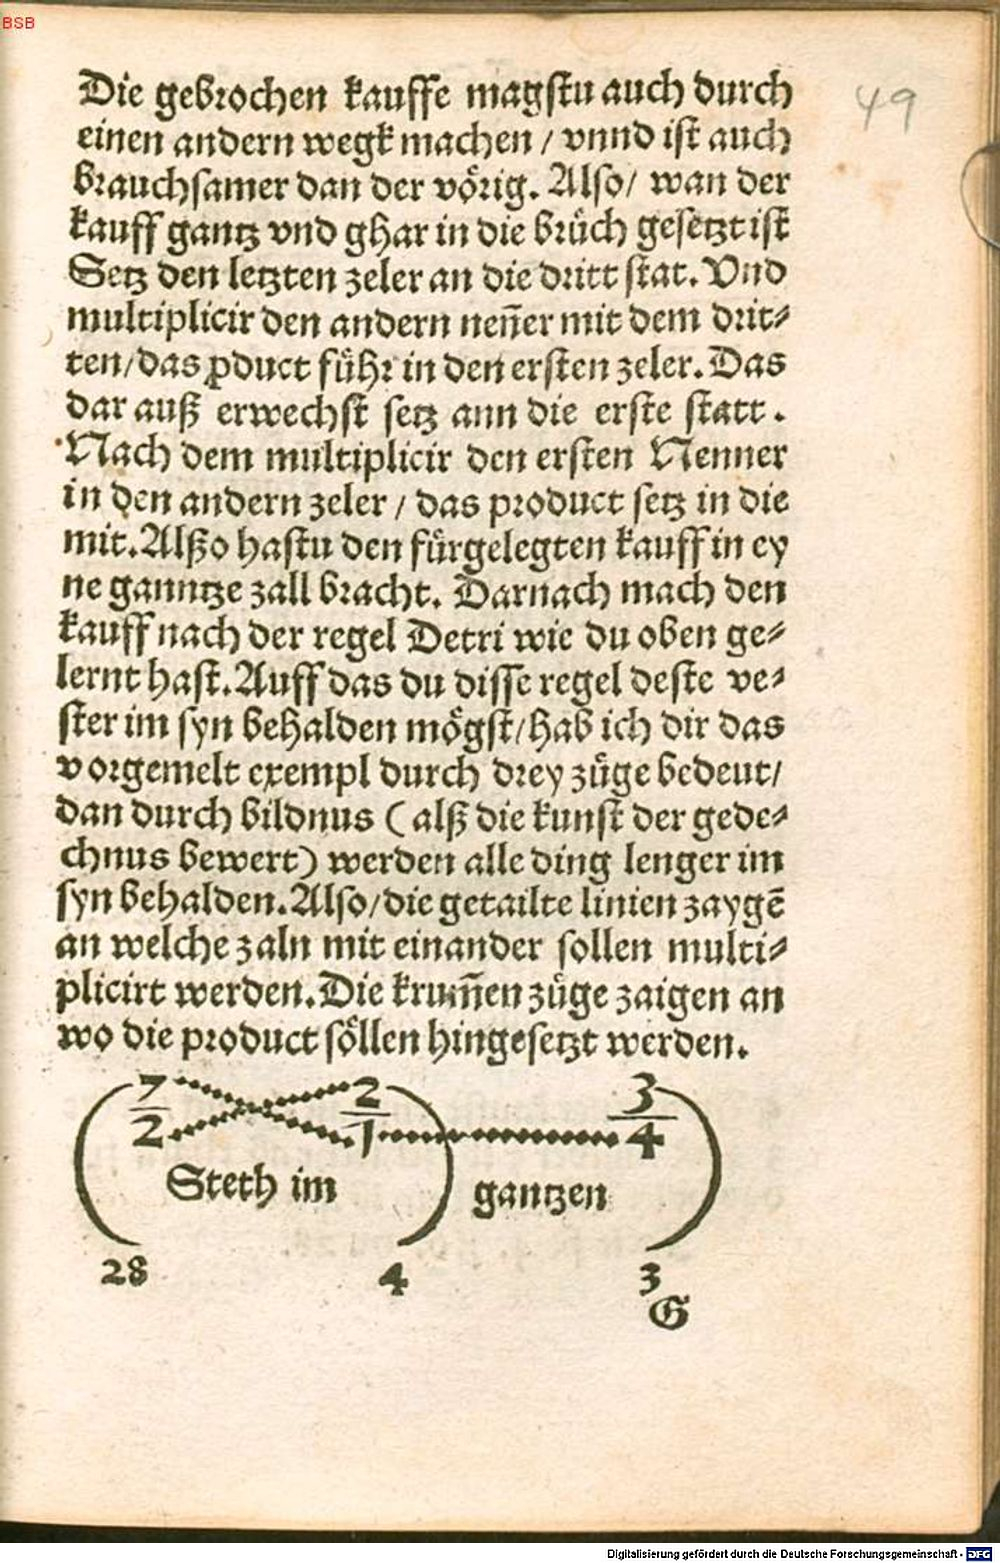 BSB
49
Die gebrochen kauffe magstu auch durch
einen andern wegk machen / vnnd ist auch
brauchsamer dan der vörig. Also/ wan der
kauff gantz vnd ghar in die brüch gesetzt ist
Setz den letzten zeler an die dritt stat. Vnd
multiplicir den andern neñer mit dem drit⸗
ten/das ꝓduct führ in den ersten zeler. Das
dar auß erwechst setz ann die erste statt.
Nach dem multiplicir den ersten Nenner
in den andern zeler / das product setz in die
mit. Alßo hastu den fürgelegten kauff in ey
ne ganntze zall bracht. Darnach mach den
kauff nach der regel Detri wie du oben ge⸗
lernt hast. Auff das du disse regel deste ve⸗
ster im syn behalden mögst/hab ich dir das
vorgemelt exempl durch drey züge bedeut/
dan durch bildnus (alß die kunst der gede⸗
chnus bewert) werden alle ding lenger im
syn behalden. Also/die getailte linien zaygē
an welche zaln mit einander sollen multi⸗
plicirt werden. Die krum̃en züge zaigen an
wo die product söllen hingesetzt werden.
7 2 3
2 1 4
Steth im gantzen
28 4 3
G
Digitalisierung gefördert durch die Deutsche Forschungsgemeinschaft - DFG